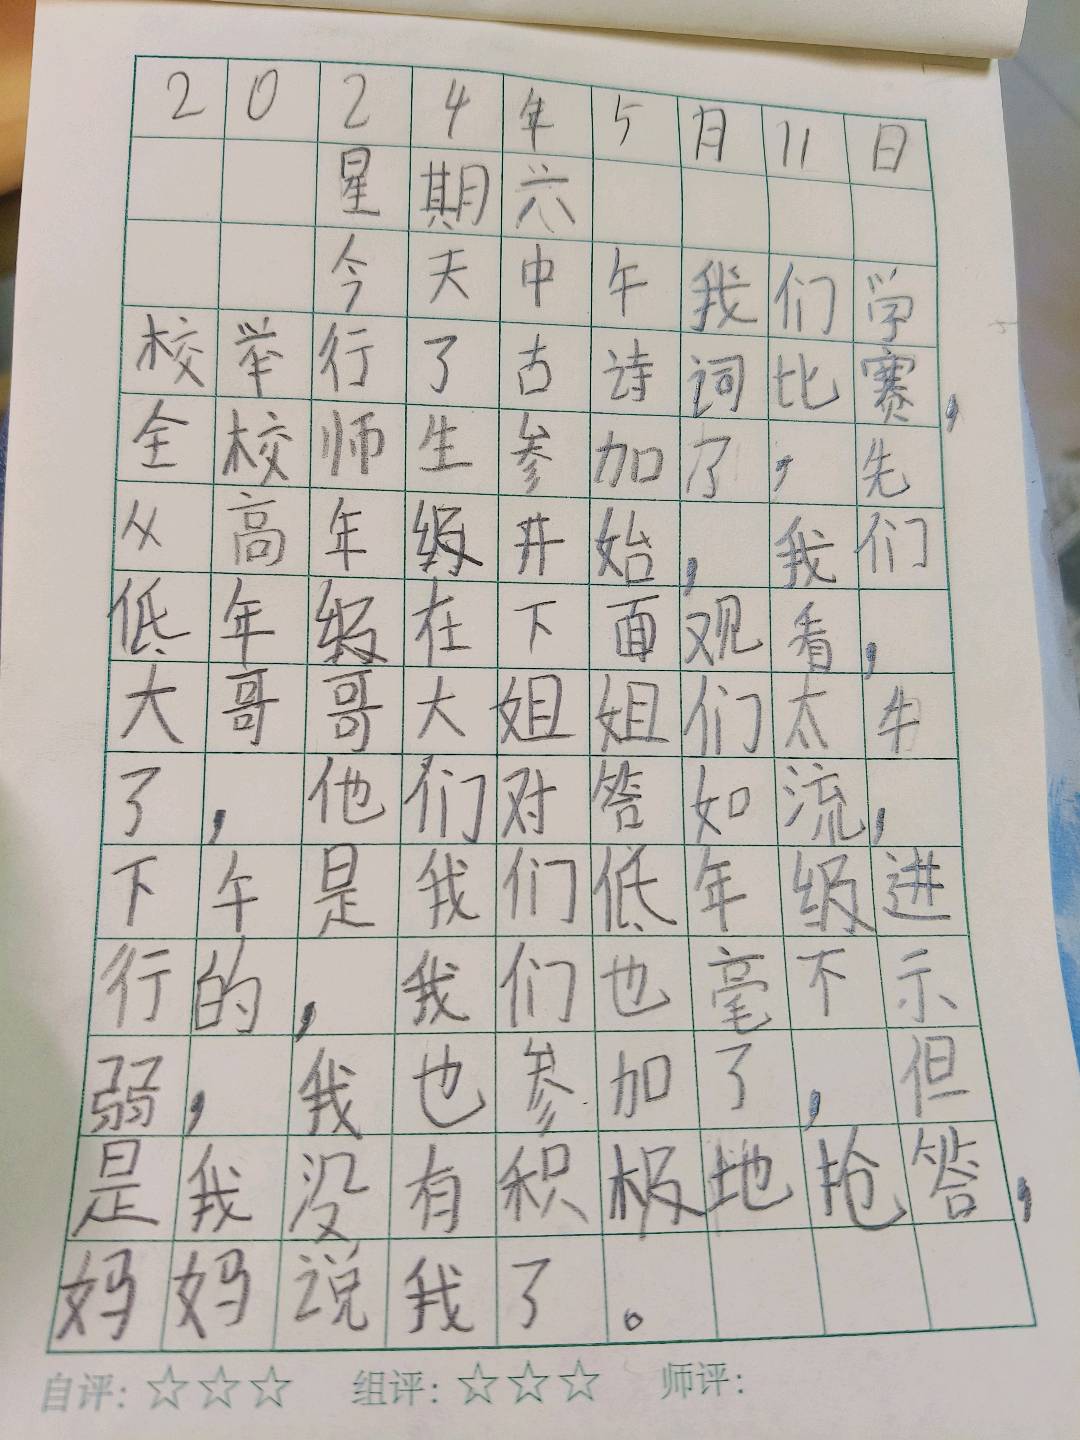 2024年5月11日
星期六
今天中午我们学
校举行了古诗词比赛，
全校师生参加了，先
从高年级开始，我们
低年级在下面观看，
大哥哥大姐姐们太牛
了，他们对答如流，
下午是我们低年级进
行的，我们也毫不示
弱，我也参加了，但
是我没有积极地抢答，
妈妈说我了。
自评：☆☆☆ 组评：☆☆☆ 师评：